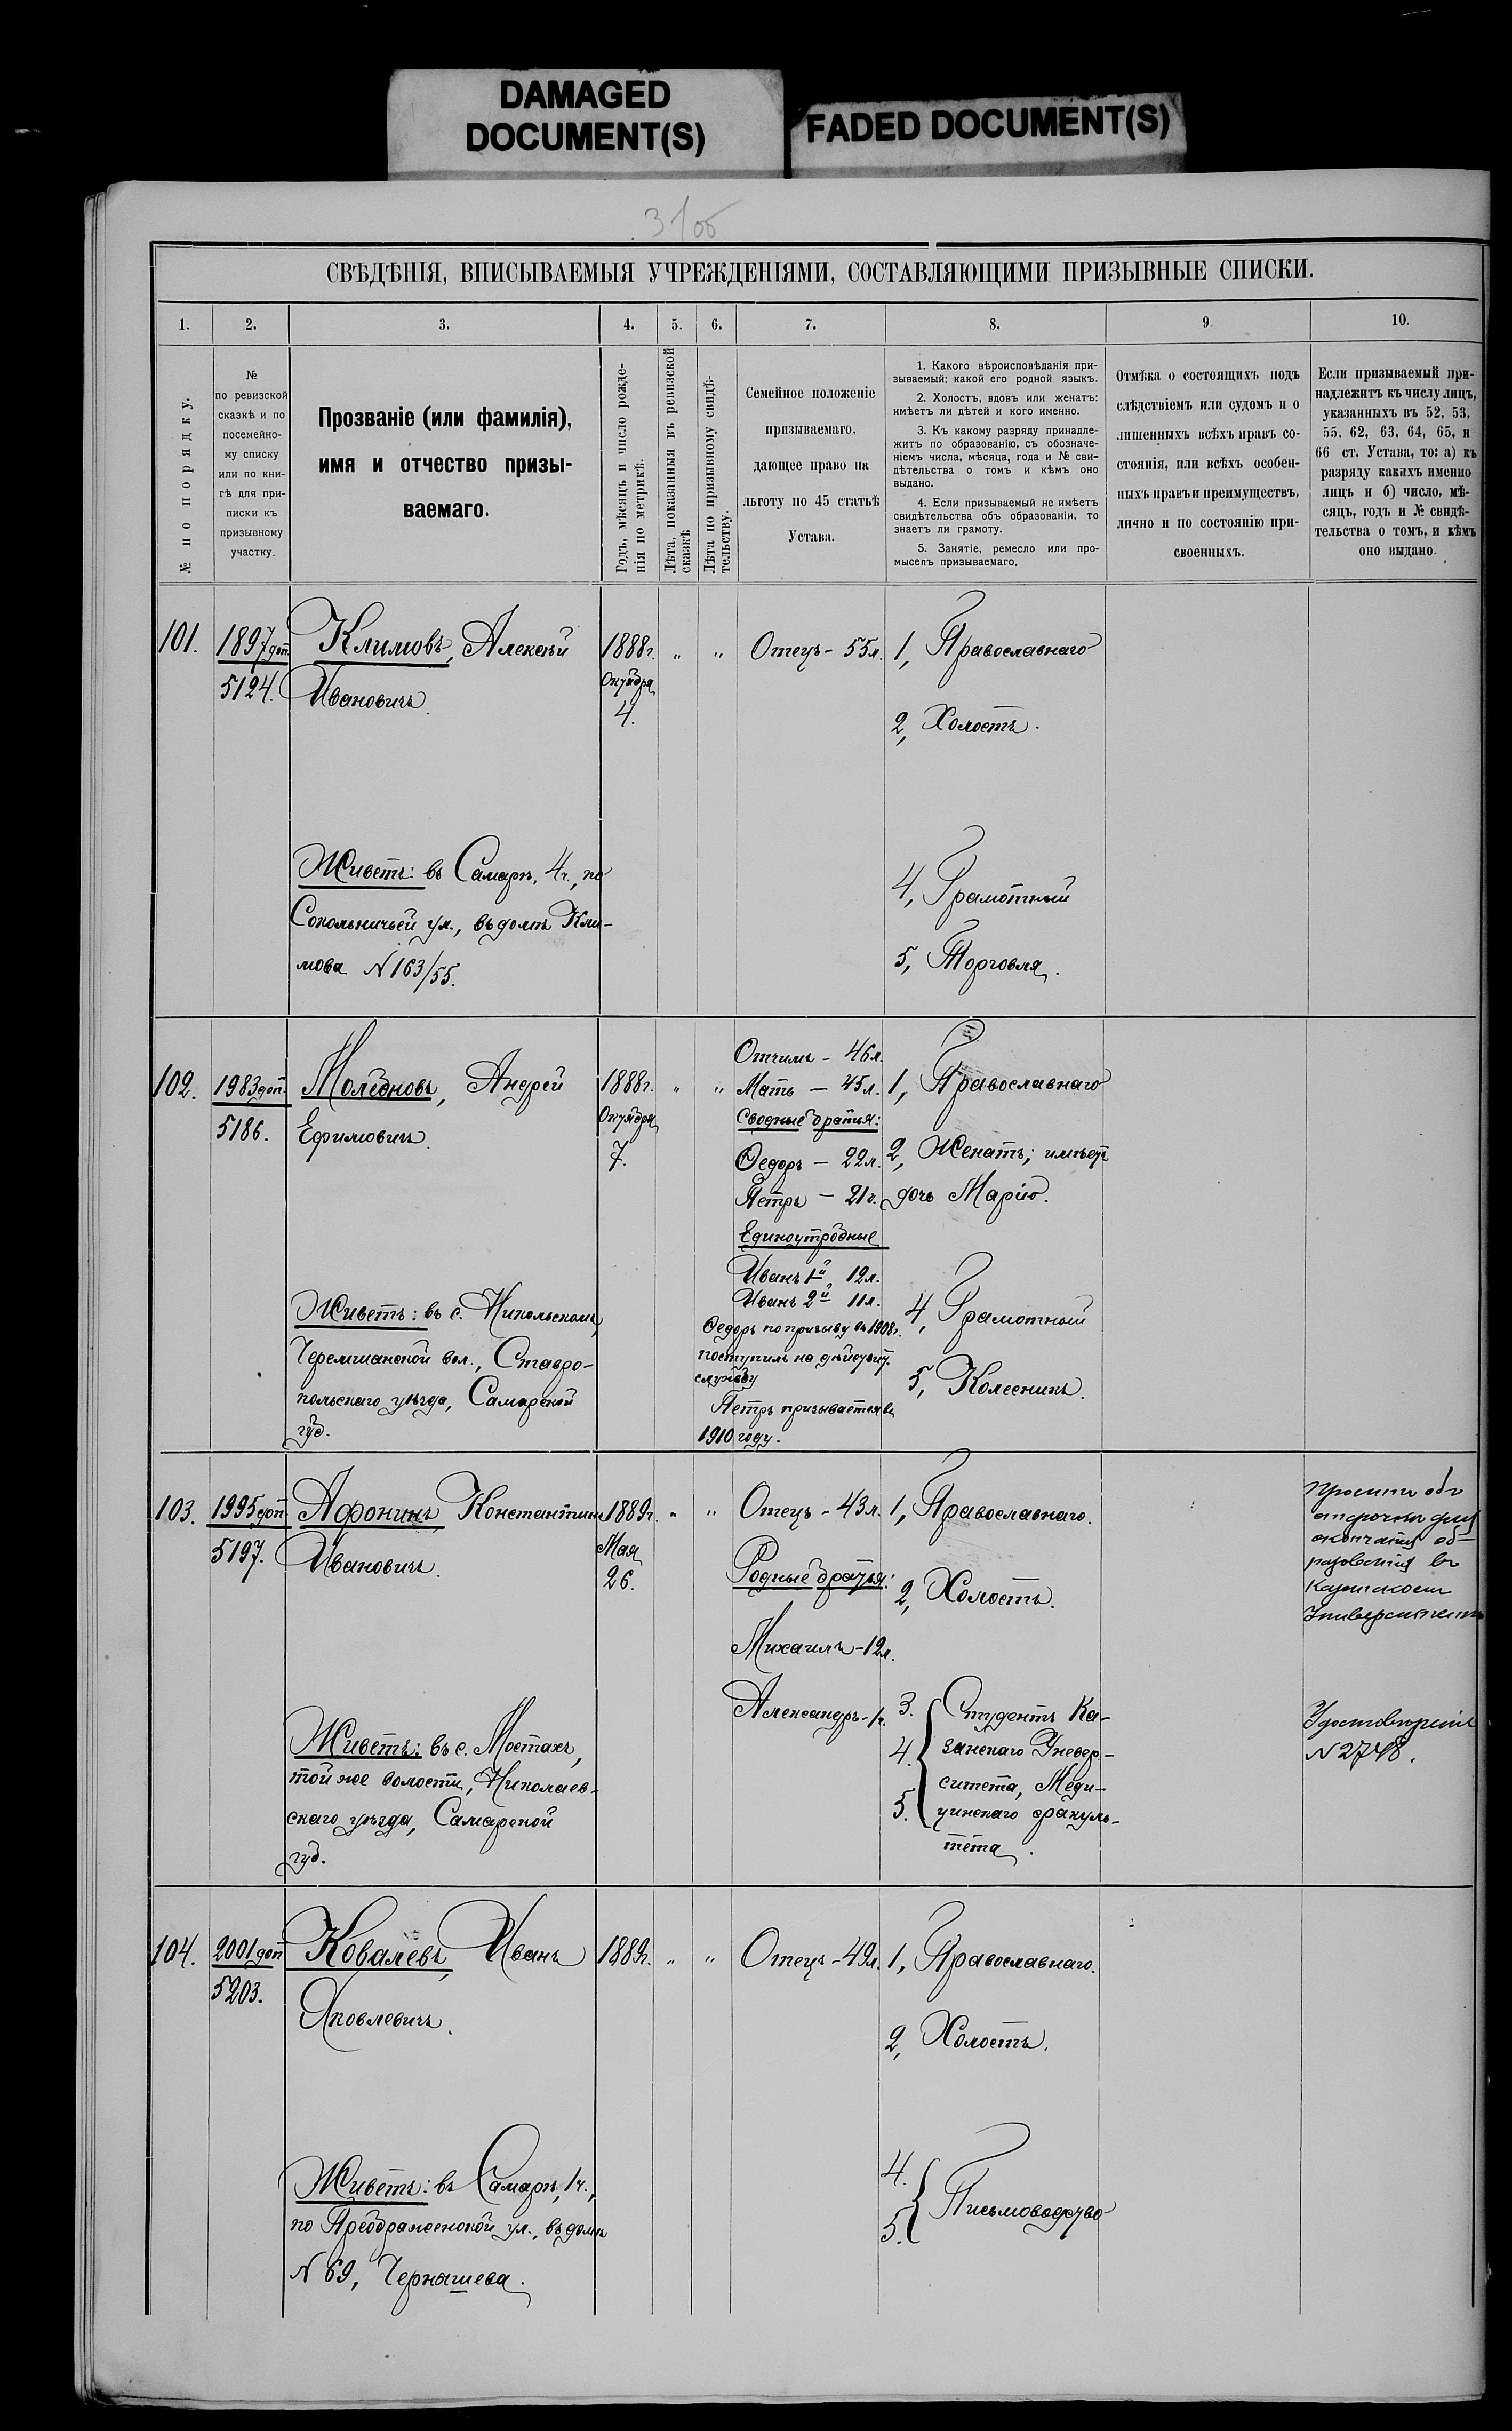 DAMAGED
DOCUMENT(S)
FADED DOCUMENT(S)
СВѢДѢНІЯ, ВПИСЫВАЕМЫЯ УЧРЕЖДЕНІЯМИ, СОСТАВЛЯЮЩИМИ ПРИЗЫВНЫЕ СПИСКИ.
1.
2.
3.
4.
5.
6.
7.
8.
9.
10.
№ по порядку.
№
по ревизской
сказкѣ и по
посемейно-
му списку
или по кни-
гѣ для при-
писки къ
призывному
участку.
Прозваніе (или фамилія),
имя и отчество призы-
ваемаго.
Годъ, мѣсяцъ и число рожде-
нія по метрикѣ.
Лѣта, показанныя въ ревизской
сказкѣ
Лѣта по призывному свидѣ-
тельству.
Семейное положеніе
призываемаго,
дающее право на
льготу по 45 статьѣ
Устава.
1. Какого вѣроисповѣданія при-
зываемый: какой его родной языкъ.
2. Холостъ, вдовъ или женатъ:
имѣетъ ли дѣтей и кого именно.
3. Къ какому разряду принадле-
житъ по образованію, съ обозначе-
ніемъ числа, мѣсяца, года и № сви-
дѣтельства о томъ и кѣмъ оно
выдано.
4. Если призываемый не имѣетъ
свидѣтельства объ образованіи, то
знаетъ ли грамоту.
5. Занятіе, ремесло или про-
мыселъ призываемаго.
Отмѣка о состоящихъ подъ
слѣдствіемъ или судомъ и о
лишенныхъ всѣхъ правъ со-
стоянія, или всѣхъ особен-
ныхъ правъ и преимуществъ,
лично и по состоянію при-
своенныхъ.
Если призываемый при-
надлежитъ къ числу лицъ,
указанныхъ въ 52, 53,
55. 62, 63, 64, 65, и
66 ст. Устава, то: а) къ
разряду какихъ именно
лицъ и б) число, мѣ-
сяцъ, годъ и № свидѣ-
тельства о томъ, и кѣмъ
оно выдано.
101.
1897 доп.
5124.
Климовъ, Алексѣй
Ивановичъ.
Живетъ: въ Самарѣ, 4ч., по
Сокольничьей ул., въ домѣ Кли-
мова N 163/55.
1888г.
Октября
4.
"
"
Отецъ - 55л.
1, Православнаго
2, Холостъ.
4, Грамотный
5, Торговля.
102.
1983 доп.
5186.
Молёдновъ, Андрей
Ефимовичъ.
Живетъ: въ с. Никольскомъ,
Черемшанской вол., Ставро-
польскаго уѣзда, Самарской
губ.
1888г.
Октября
7.
"
"
Отчимъ - 46л.
Мать - 45л.
Сводные братья:
Ѳедоръ - 22л.
Петръ - 21г.
Единоутробные
Иванъ 1й 12л.
Иванъ 2й 11л.
Ѳедоръ по призыву въ 1908г.
поступилъ на дѣйствит.
службу
Петръ призывается въ
1910 году.
1, Православнаго
2, Женатъ; имѣетъ
дочь Марію.
4, Грамотный
5, Колесникъ.
103.
1995 доп.
5197.
Афонинъ Константинъ
Ивановичъ.
Живетъ: въ с. Мостахъ,
той же волости, Николаев-
скаго уѣзда, Самарской
губ.
1889г.
Мая
26.
"
"
Отецъ - 43л.
Родные братья:
Михаилъ - 12л.
Александръ - 1г.
1, Православнаго.
2, Холостъ.
3.
4.
5.
Студентъ Ка-
занскаго Универ-
ситета, Меди-
цинскаго факуль-
тета.
Проситъ объ
отсрочкѣ для
окончанія об-
разованія въ
Казанскомъ
Университетѣ
Удостовѣреніе
N 2748.
104.
2001 доп.
5203.
Ковалевъ, Иванъ
Яковлевичъ.
Живетъ: въ Самарѣ, 1ч.,
по Преображенской ул., въ домѣ
N 69, Чернышева.
1889г.
"
"
Отецъ - 49л.
1, Православнаго.
2, Холостъ.
4.
5.
Письмоводство